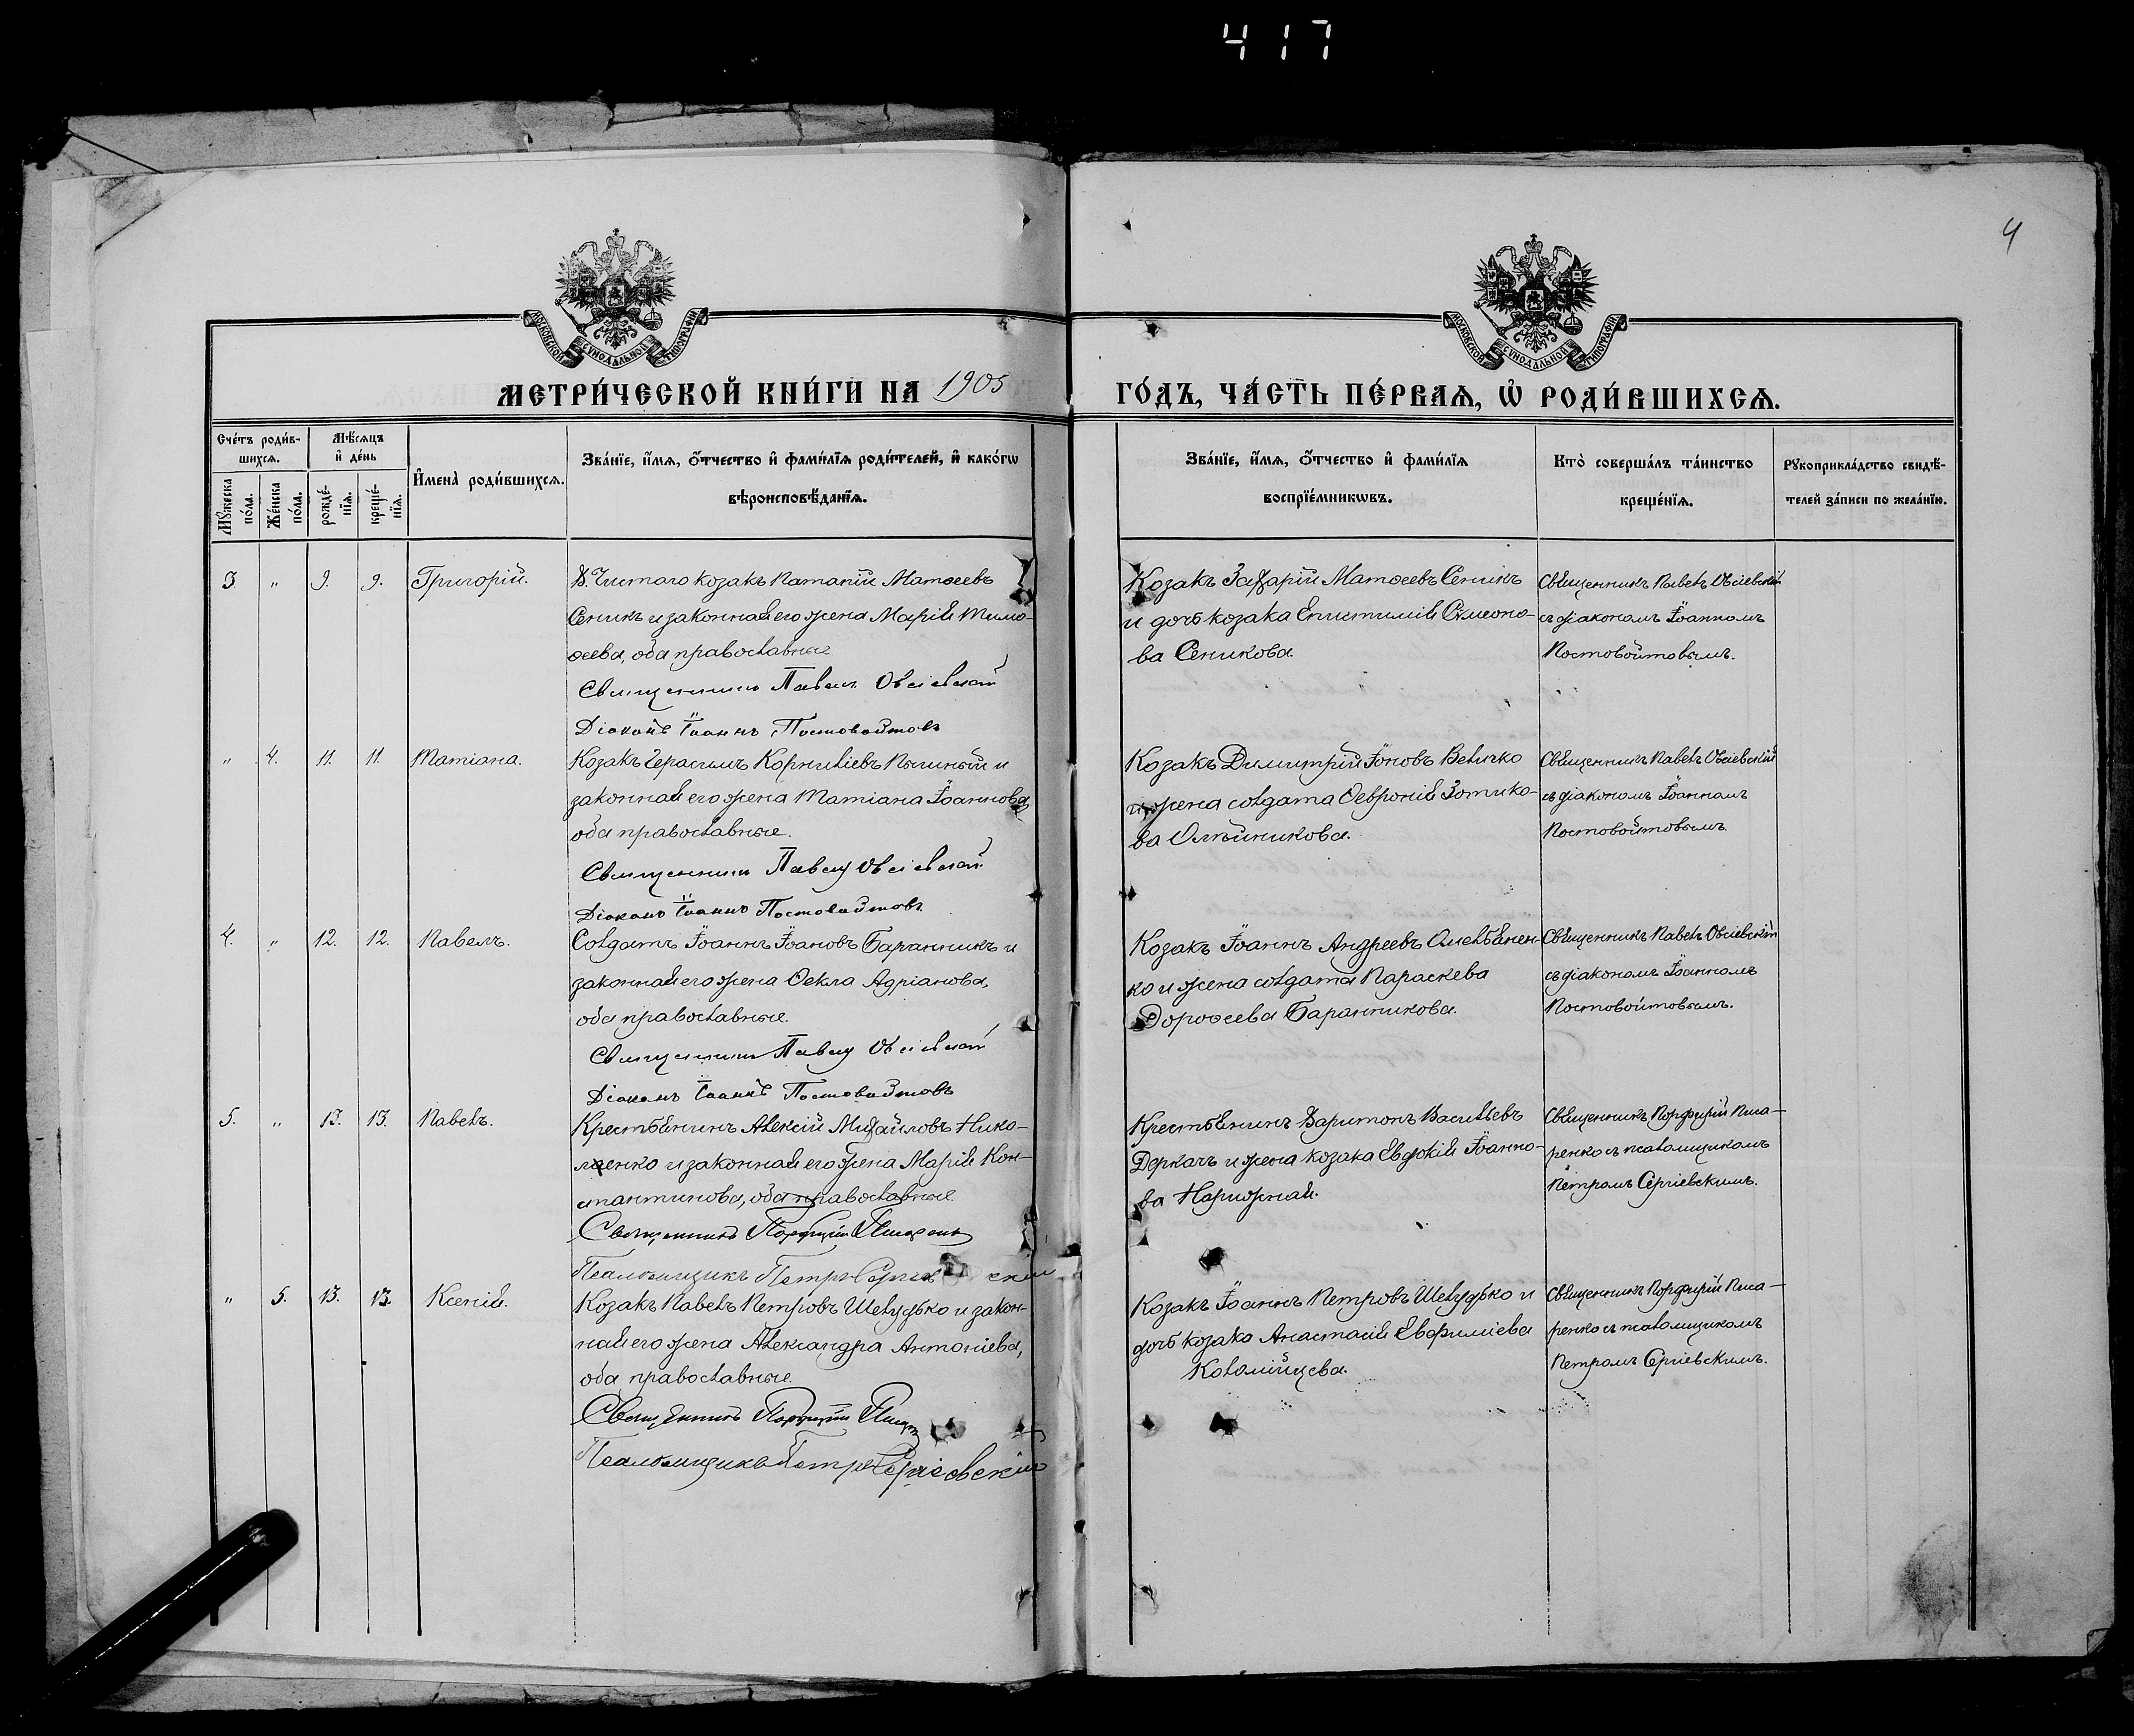 417
4
МОСКОВСКОЙ СѴНОДАЛЬНОЙ ТИПОГРАФІИ
МОСКОВСКОЙ СѴНОДАЛЬНОЙ ТИПОГРАФІИ
МЕТРИ́ЧЕСКОЙ КНИ́ГИ НА 1905 ГО́ДЪ, ЧА́СТЬ ПЕ́РВАѦ, Ѡ҆ РОДИ́ВШИХСѦ.
Сче́тъ роди́в-
шихсѧ.
Мꙋ́жеска по́ла.
Же́нска по́ла.
Мѣ́сѧцъ
и҆ де́нь
рожде́-
нїѧ.
креще́-
нїѧ.
И҆мена̀ роди́вшихсѧ.
Зва́нїе, и҆́мѧ, ѻ҆́тчество и҆ фами́лїѧ роди́телей, и҆ како́гѡ
вѣроисповѣ́данїѧ.
Зва́нїе, и҆́мѧ, ѻ҆́тчество и҆ фами́лїѧ
воспрїе́мникѡвъ.
Кто̀ соверша́лъ та́инство
креще́нїѧ.
Рꙋкоприкла́дство свидѣ́-
телей за́писи по жела́нїю.
3 " 9. 9. Григорій.
Козакъ Паталій Матѳеевъ
Сеникъ и законная его жена Марія Тимо-
ѳеева, оба православные
Священникъ Павелъ Овсіевскій
Діаконъ Іоаннъ Постовойтовъ
Козакъ Захарій Матѳеевъ Сеникъ
и дочь козака Епистимія Симеоно-
ва Сеникова.
Священникъ Павелъ Овсіевскій
съ діакономъ Іоанномъ
Постовойтовымъ.
" 4. 11. 11. Татіана.
Козакъ Герасимъ Корниліевъ и
законная его жена Татіана Іоаннова,
оба православные.
Священникъ Павелъ Овсіевскій
Діаконъ Іоаннъ Постовойтовъ
Козакъ Димитрій Іоновъ Величко
и жена солдата Ѳевронія Зотико-
ва Олейникова.
Священникъ Павелъ Овсіевскій
съ діакономъ Іоанномъ
Постовойтовымъ
4. " 12. 12. Павелъ.
Солдатъ Іоаннъ Іоановъ Баранникъ и
законная его жена Ѳекла Адріанова,
оба православные.
Священникъ Павелъ Овсіевскій
Діаконъ Іоаннъ Постовойтовъ
Козакъ Іоаннъ Андреевъ Омельянен-
ко и жена солдата Параскева
Дороѳеева Баранникова.
Священникъ Павелъ Овсіевскій
съ діакономъ Іоанномъ
Постовойтовымъ.
5. " 13. 13. Павелъ.
Крестьянинъ Алексій Михайловъ Нико-
лаенко и законная его жена Марія Кон-
стантинова, оба православные.
Священникъ Порфирій Писаренко
Псаломщикъ Петръ Сергіевскій
Крестьянинъ Харитонъ Васильевъ
Деркачъ и жена козака Евдокія Іоанно-
ва Нарижная.
Священникъ Порфирій Писа-
ренко съ псаломщикомъ
Петромъ Сергіевскимъ.
" 5. 13. 13. Ксенія.
Козакъ Павелъ Петровъ Шелудько и закон-
ная его жена Александра Антоніева,
оба православные.
Священникъ Порфирій
Псаломщикъ Петръ Сергіевскій
Козакъ Іоаннъ Петровъ Шелудько и
дочь козака Анастасія Евфиміева
Коломійцева.
Священникъ Порфирій Писа-
ренко съ псаломщикомъ
Петромъ Сергіевскимъ.